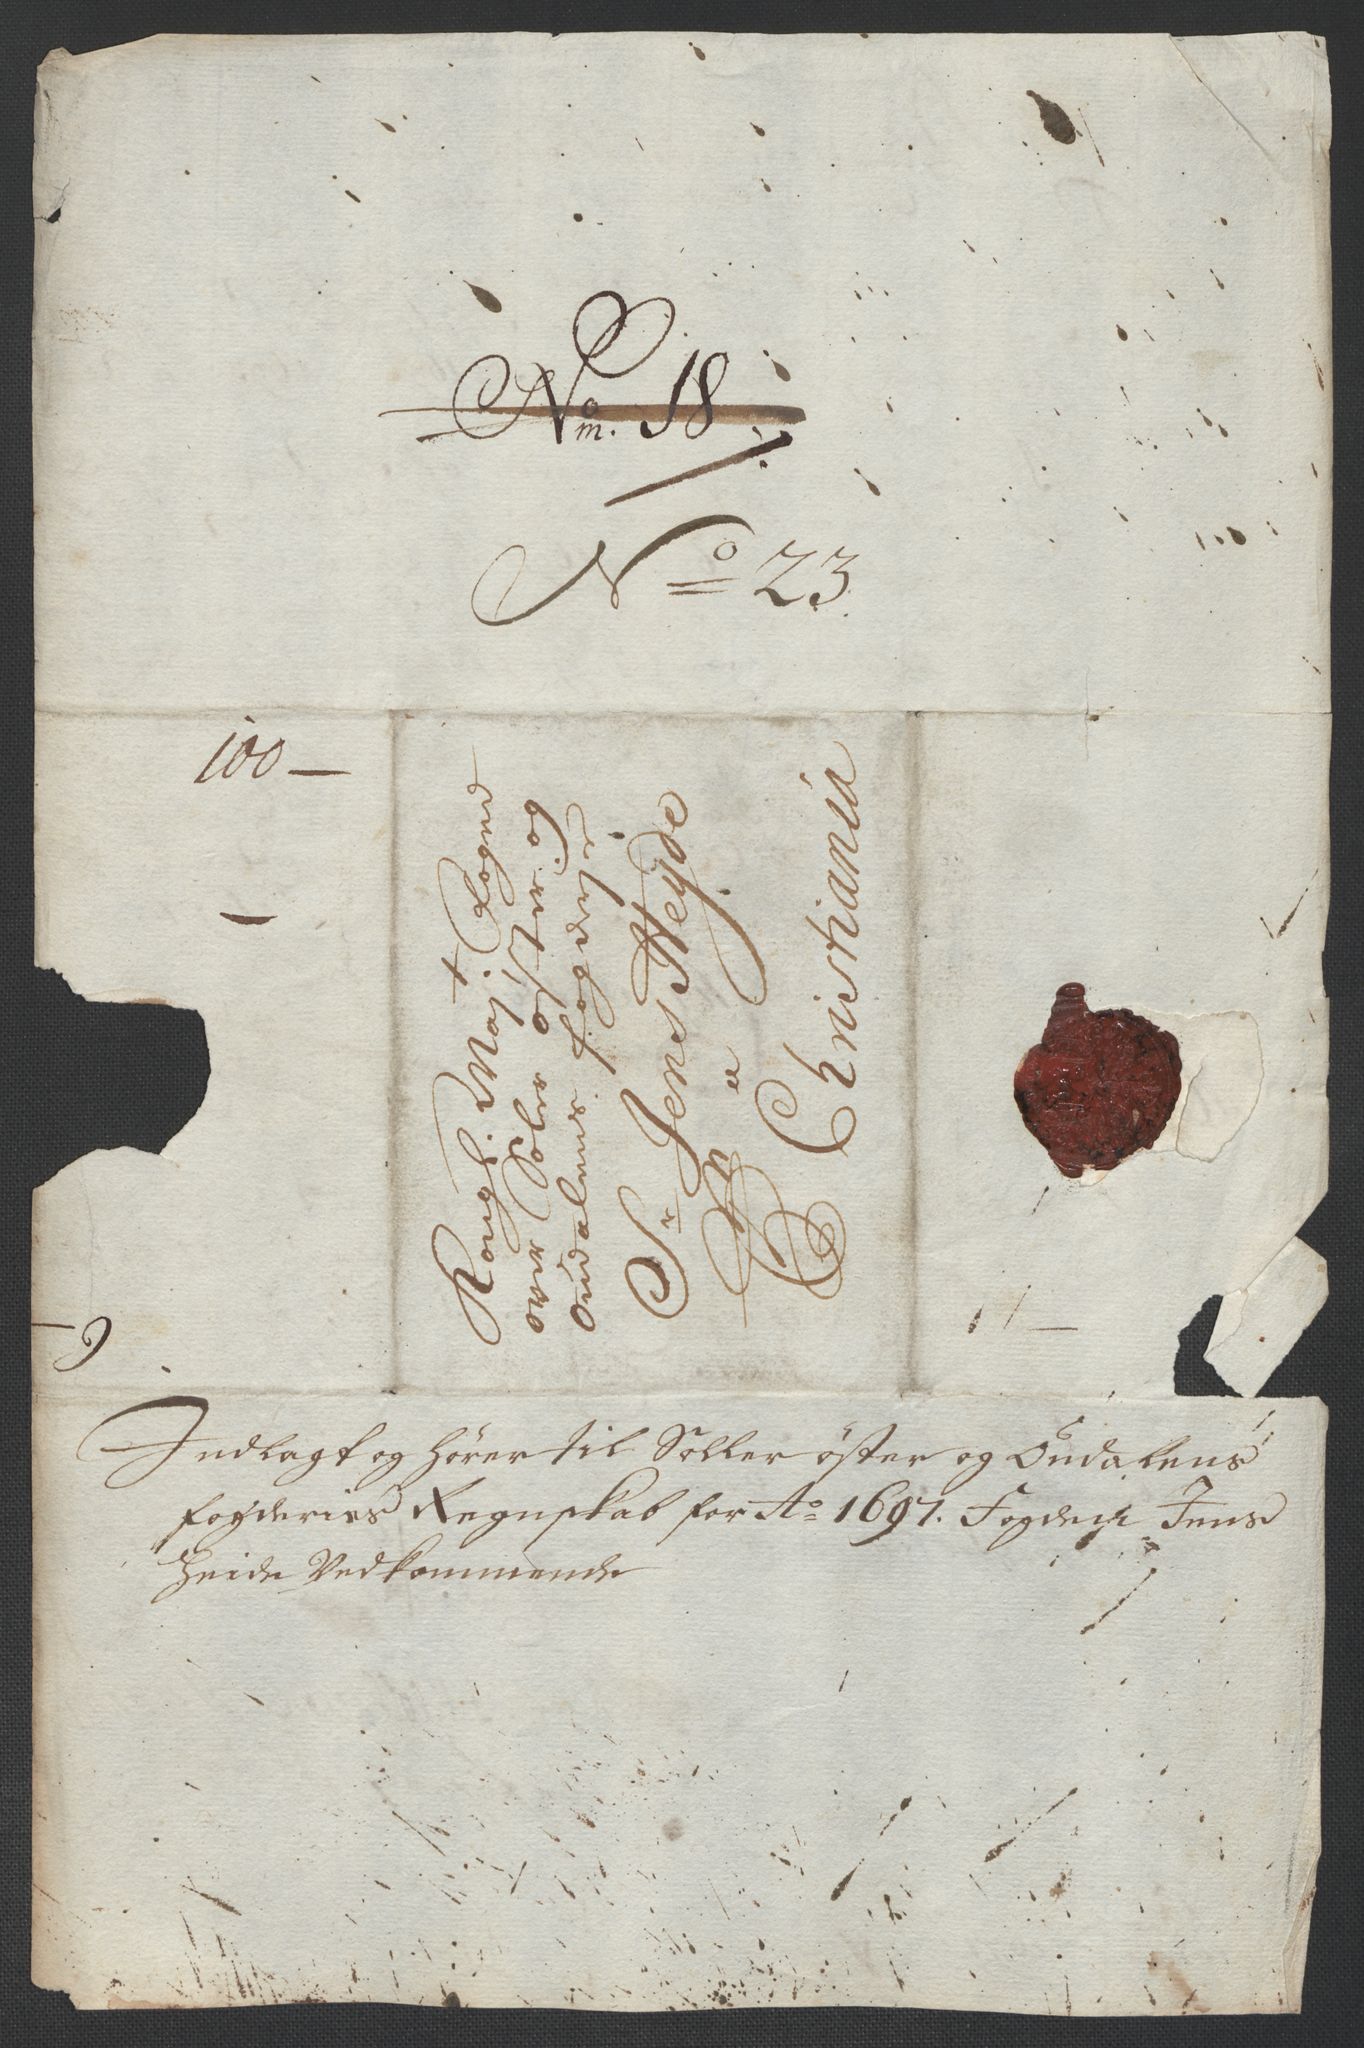 Nom. 18
No 23.
100 —
Kongl. Maj.t Foged
over Soler Øster og
Oudalens fogderj
Sr Jens Heyde
Christiania
Indlagt og hører til Soller öster og Oudalens
fogderies Regnskab for Ao 1697. Fogden Jens
Heide Vedkommende